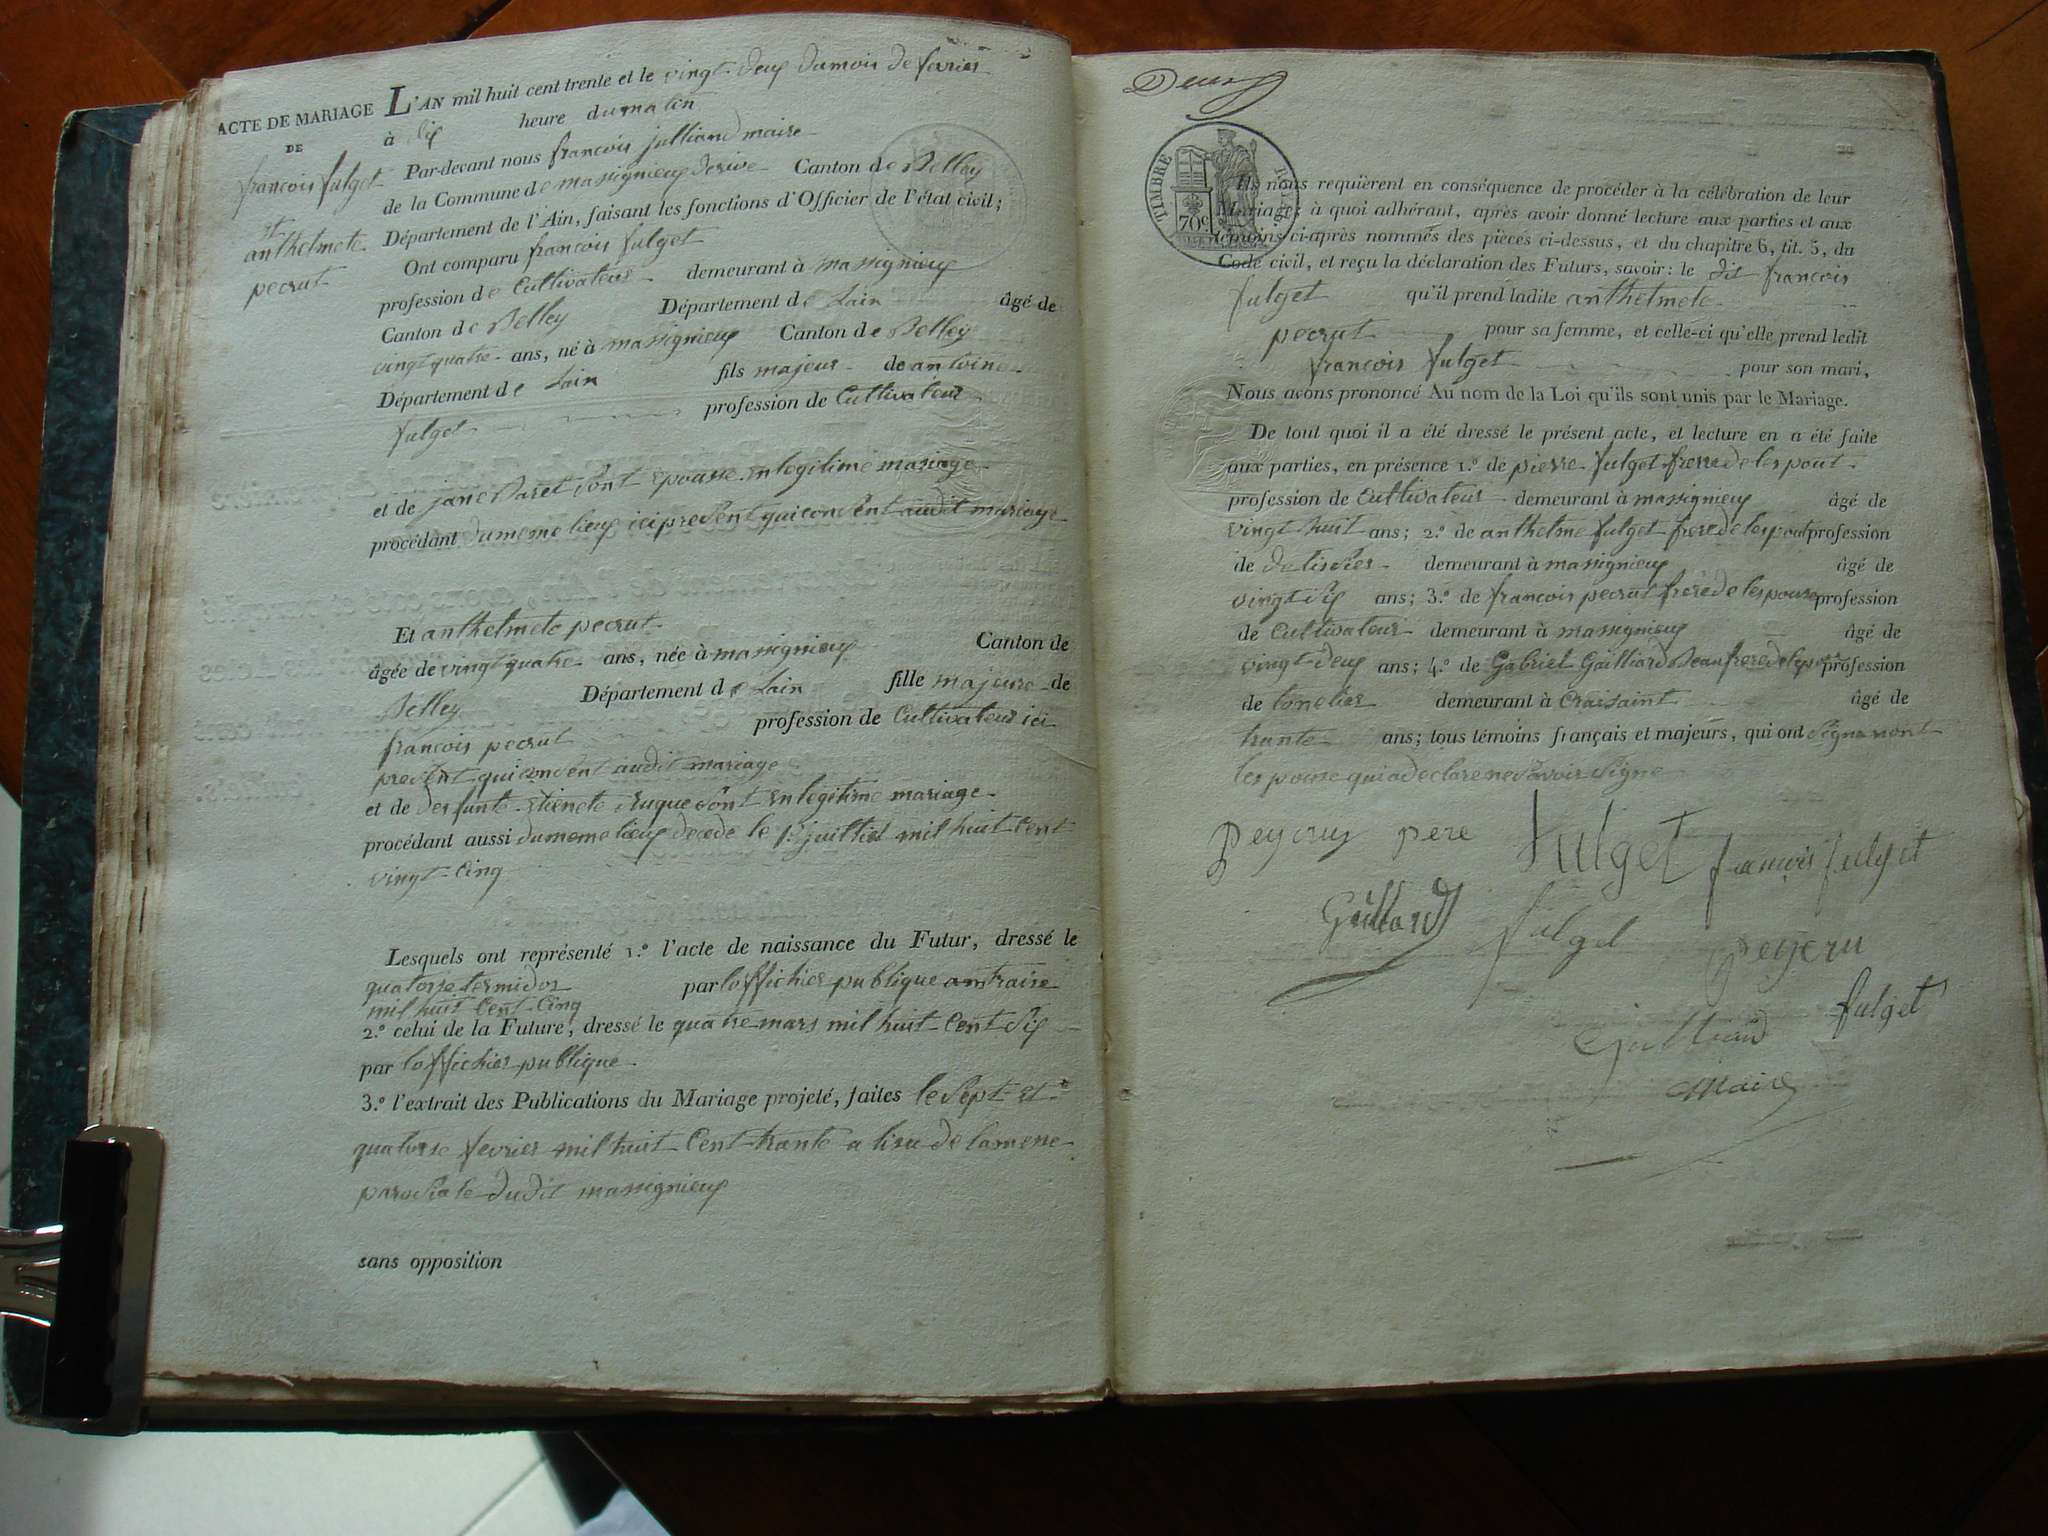 ACTE DE MARIAGE
DE
francois fulget
et
anthelmete
pecrut
L'AN mil huit cent trente et le vingt-deux du mois de fevrier
à dix heure du matin
Par-devant nous francois julliand maire
de la Commune de massignieux derive Canton de Belley
Département de l'Ain, faisant les fonctions d'Officier de l'état civil;
Ont comparu francois fulget
profession de Cultivateur demeurant à massignieux
Canton de Belley Département de Lain âgé de
vingt quatre ans, né à massignieux Canton de Belley
Département de Lain fils majeur de antoine
fulget profession de Cultivateur
et de jane Baret sont epousse en legitime mariage
procédant du meme lieux ici present qui consent audit mariage
Et anthelmete pecrut
âgée de vingt quatre ans, née à massignieux Canton de
Belley Département de Lain fille majeure de
francois pecrut profession de Cultivateur ici
present qui consent audit mariage
et de defunte etienete sont en legitime mariage
procédant aussi du meme lieux decede le 1r juillet mil huit cent
vingt-cinq
Lesquels ont représenté 1.º l'acte de naissance du Futur, dressé le
quatorse termidor par loffichier publique
mil huit cent cinq
2.º celui de la Future, dressé le quatre mars mil huit cent six
par loffichier publique
3.º l'extrait des Publications du Mariage projeté, faites le sept et
quatorse fevrier mil huit cent trante a lisu de la mese
parosiale dudit massignieux
sans opposition
Deux
TIMBRE ROYAL
70c
Ils nous requièrent en conséquence de procéder à la célébration de leur
Mariage; à quoi adhérant, après avoir donné lecture aux parties et aux
témoins ci-après nommés des pièces ci-dessus, et du chapitre 6, tit. 5, du
Code civil, et reçu la déclaration des Futurs, savoir: le dit francois
fulget qu'il prend ladite anthelmete
pecrut pour sa femme, et celle-ci qu'elle prend ledit
francois fulget pour son mari,
Nous avons prononcé Au nom de la Loi qu'ils sont unis par le Mariage.
De tout quoi il a été dressé le présent acte, et lecture en a été faite
aux parties, en présence 1.º de pierre fulget frere de lespout
profession de Cultivateur demeurant à massignieux âgé de
vingt huit ans; 2.º de anthelme fulget frere de lespout profession
de demeurant à massignieux âgé de
vingt six ans; 3.º de francois pecrut frere de lespouse profession
de Cultivateur demeurant à massignieux âgé de
vingt-deux ans; 4.º de Gabriel Gailliard Beaufrere de profession
de tonelier demeurant à Craisaint âgé de
trante ans; tous témoins français et majeurs, qui ont signe nont
lespouse qui a declare ne savoir signe
peycru pere fulget francois fulget
Gaillard fulget peycru
fulget
Julliand
Maire